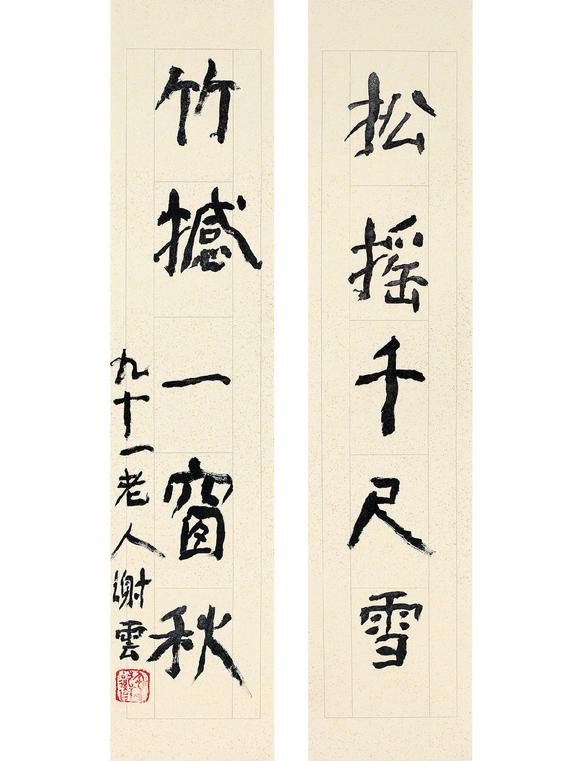 松摇千尺雪
竹撼一窗秋
九十一老人谢云